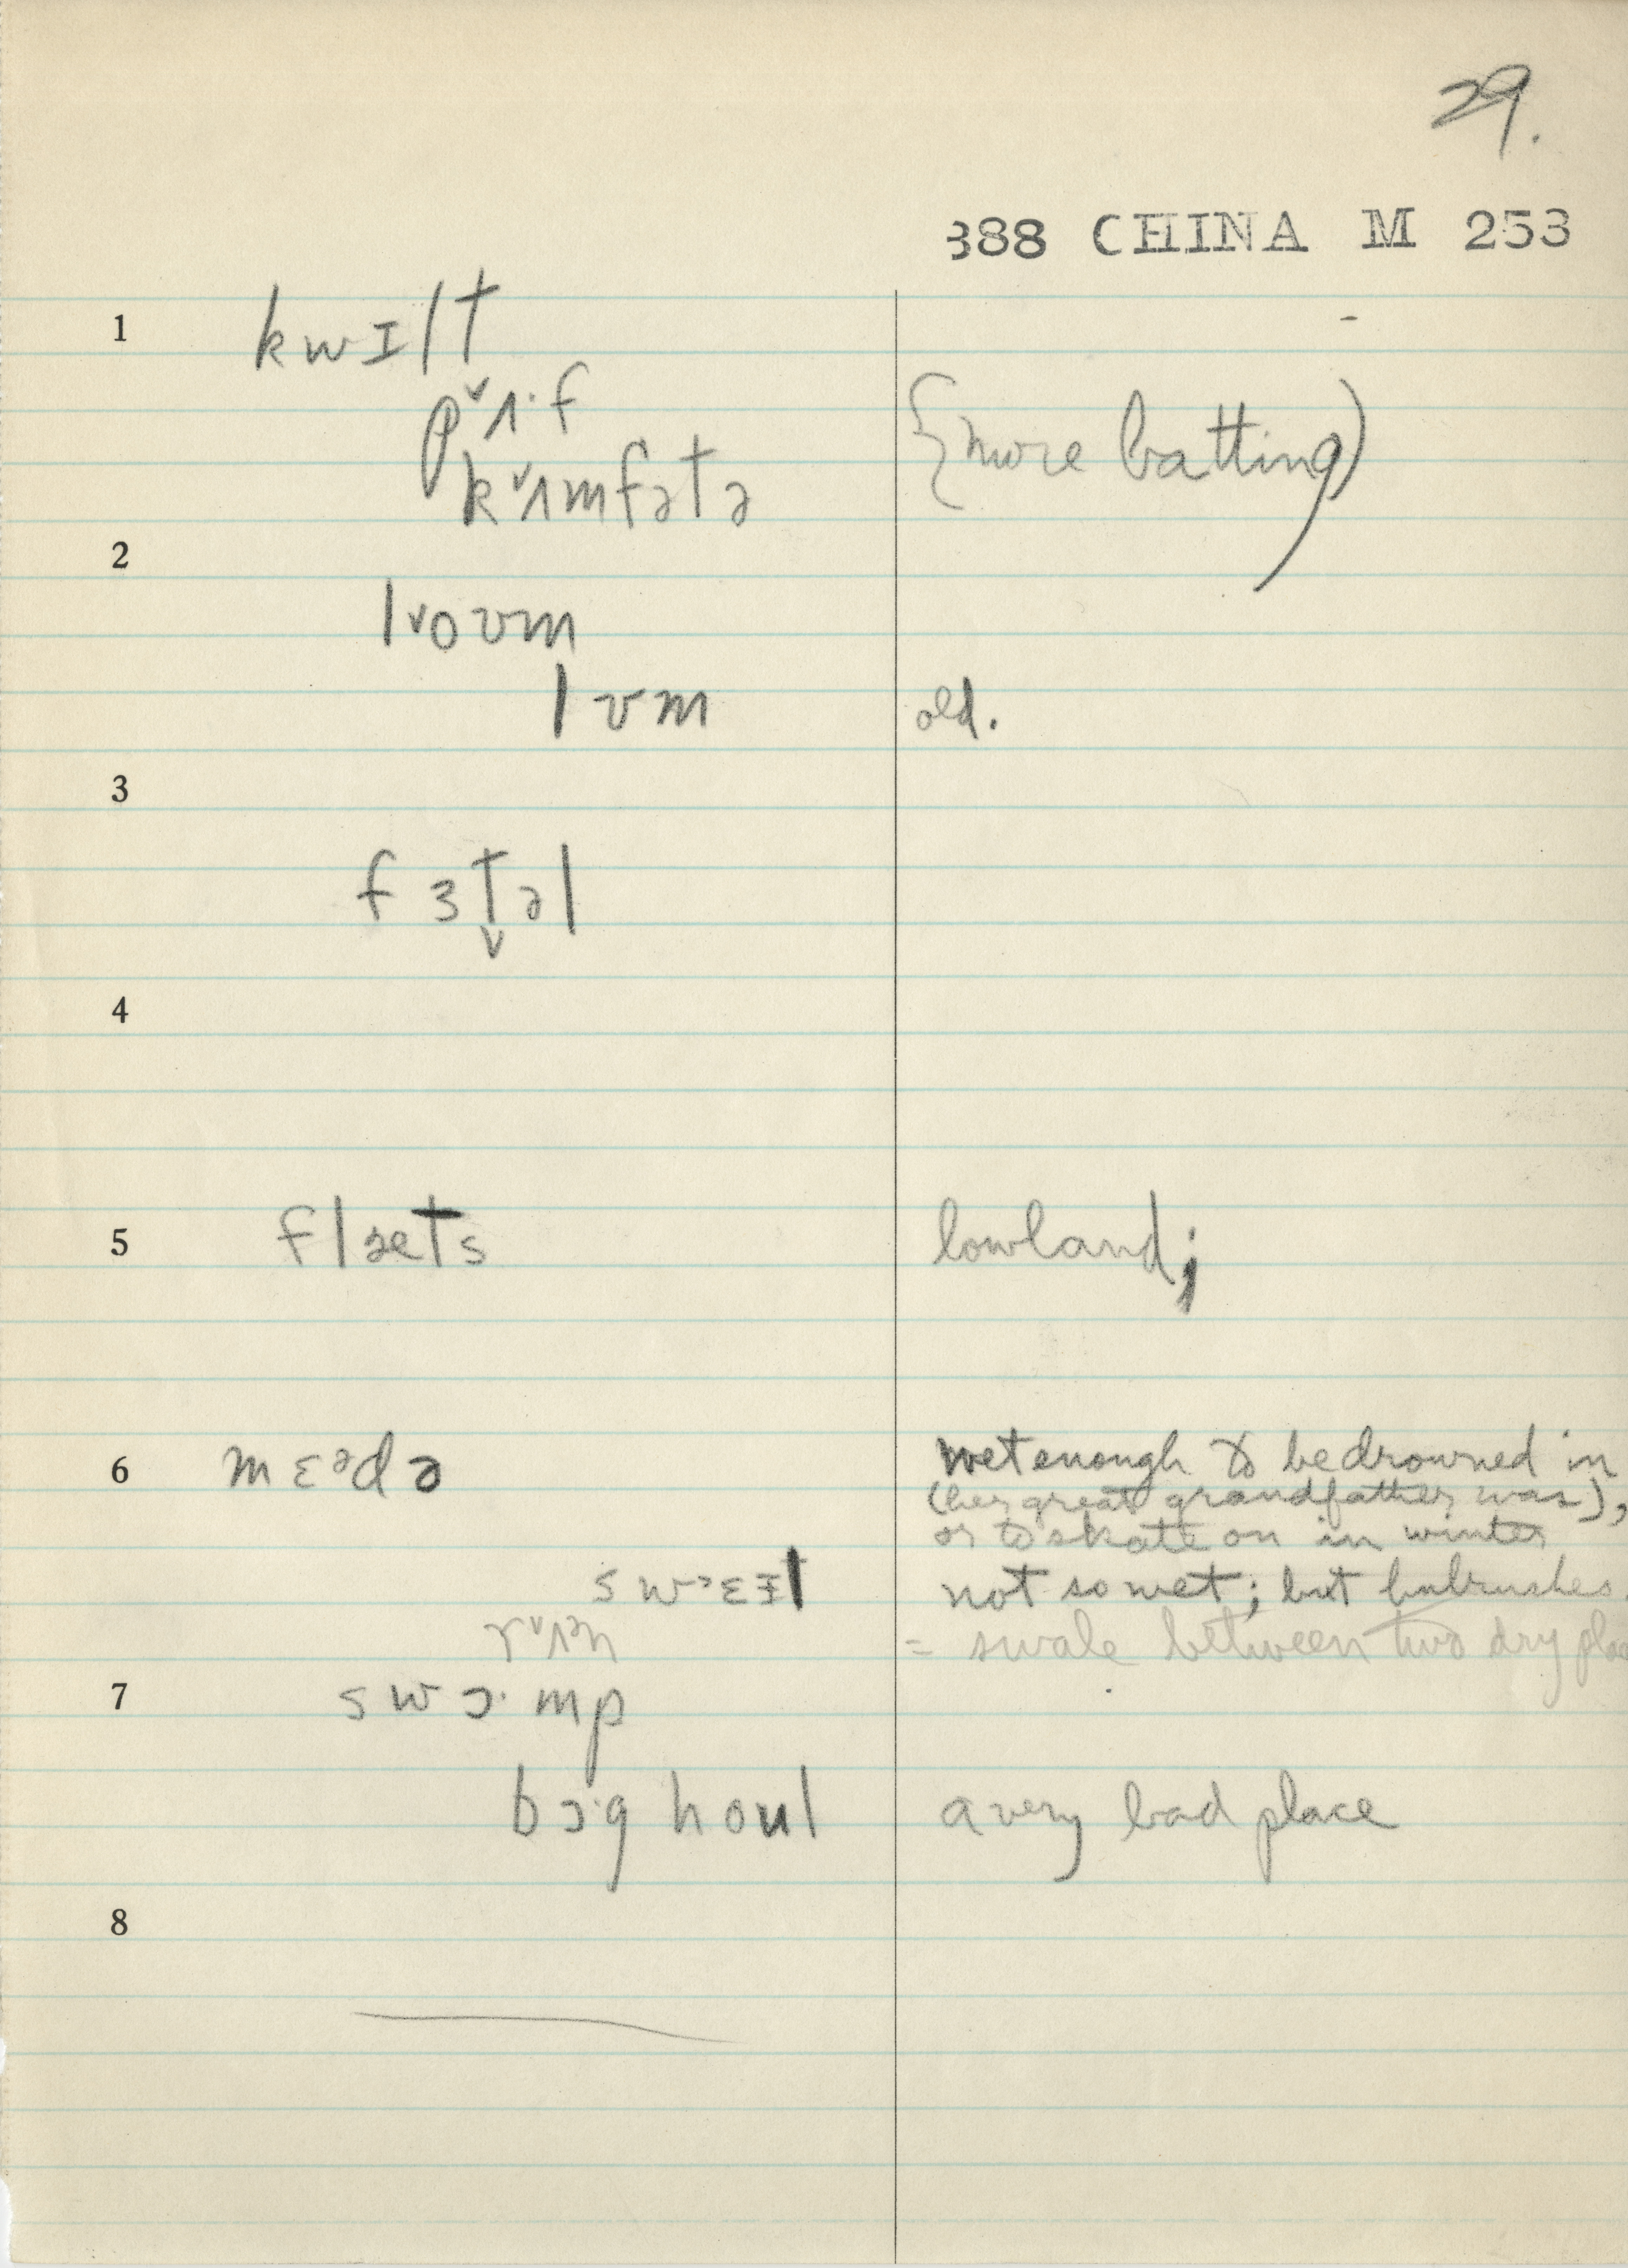 29.
388 CHINA M 253
1 kwɪlt
pˇʌ·f
kˇʌmfətə {more batting)
2
lˇoʊm
lʊm old.
3
fɜt̬əl
4
5 flæts lowland;
6 mɛᵊdə wet enough to be drowned in
(her great grandfather was),
or to skate on in winter
swɛɪl not so wet; but bulrushes.
rˇʌᵊn = swale between two dry
7 swɔ·mp
bɔ·g hoʊl a very bad place
8